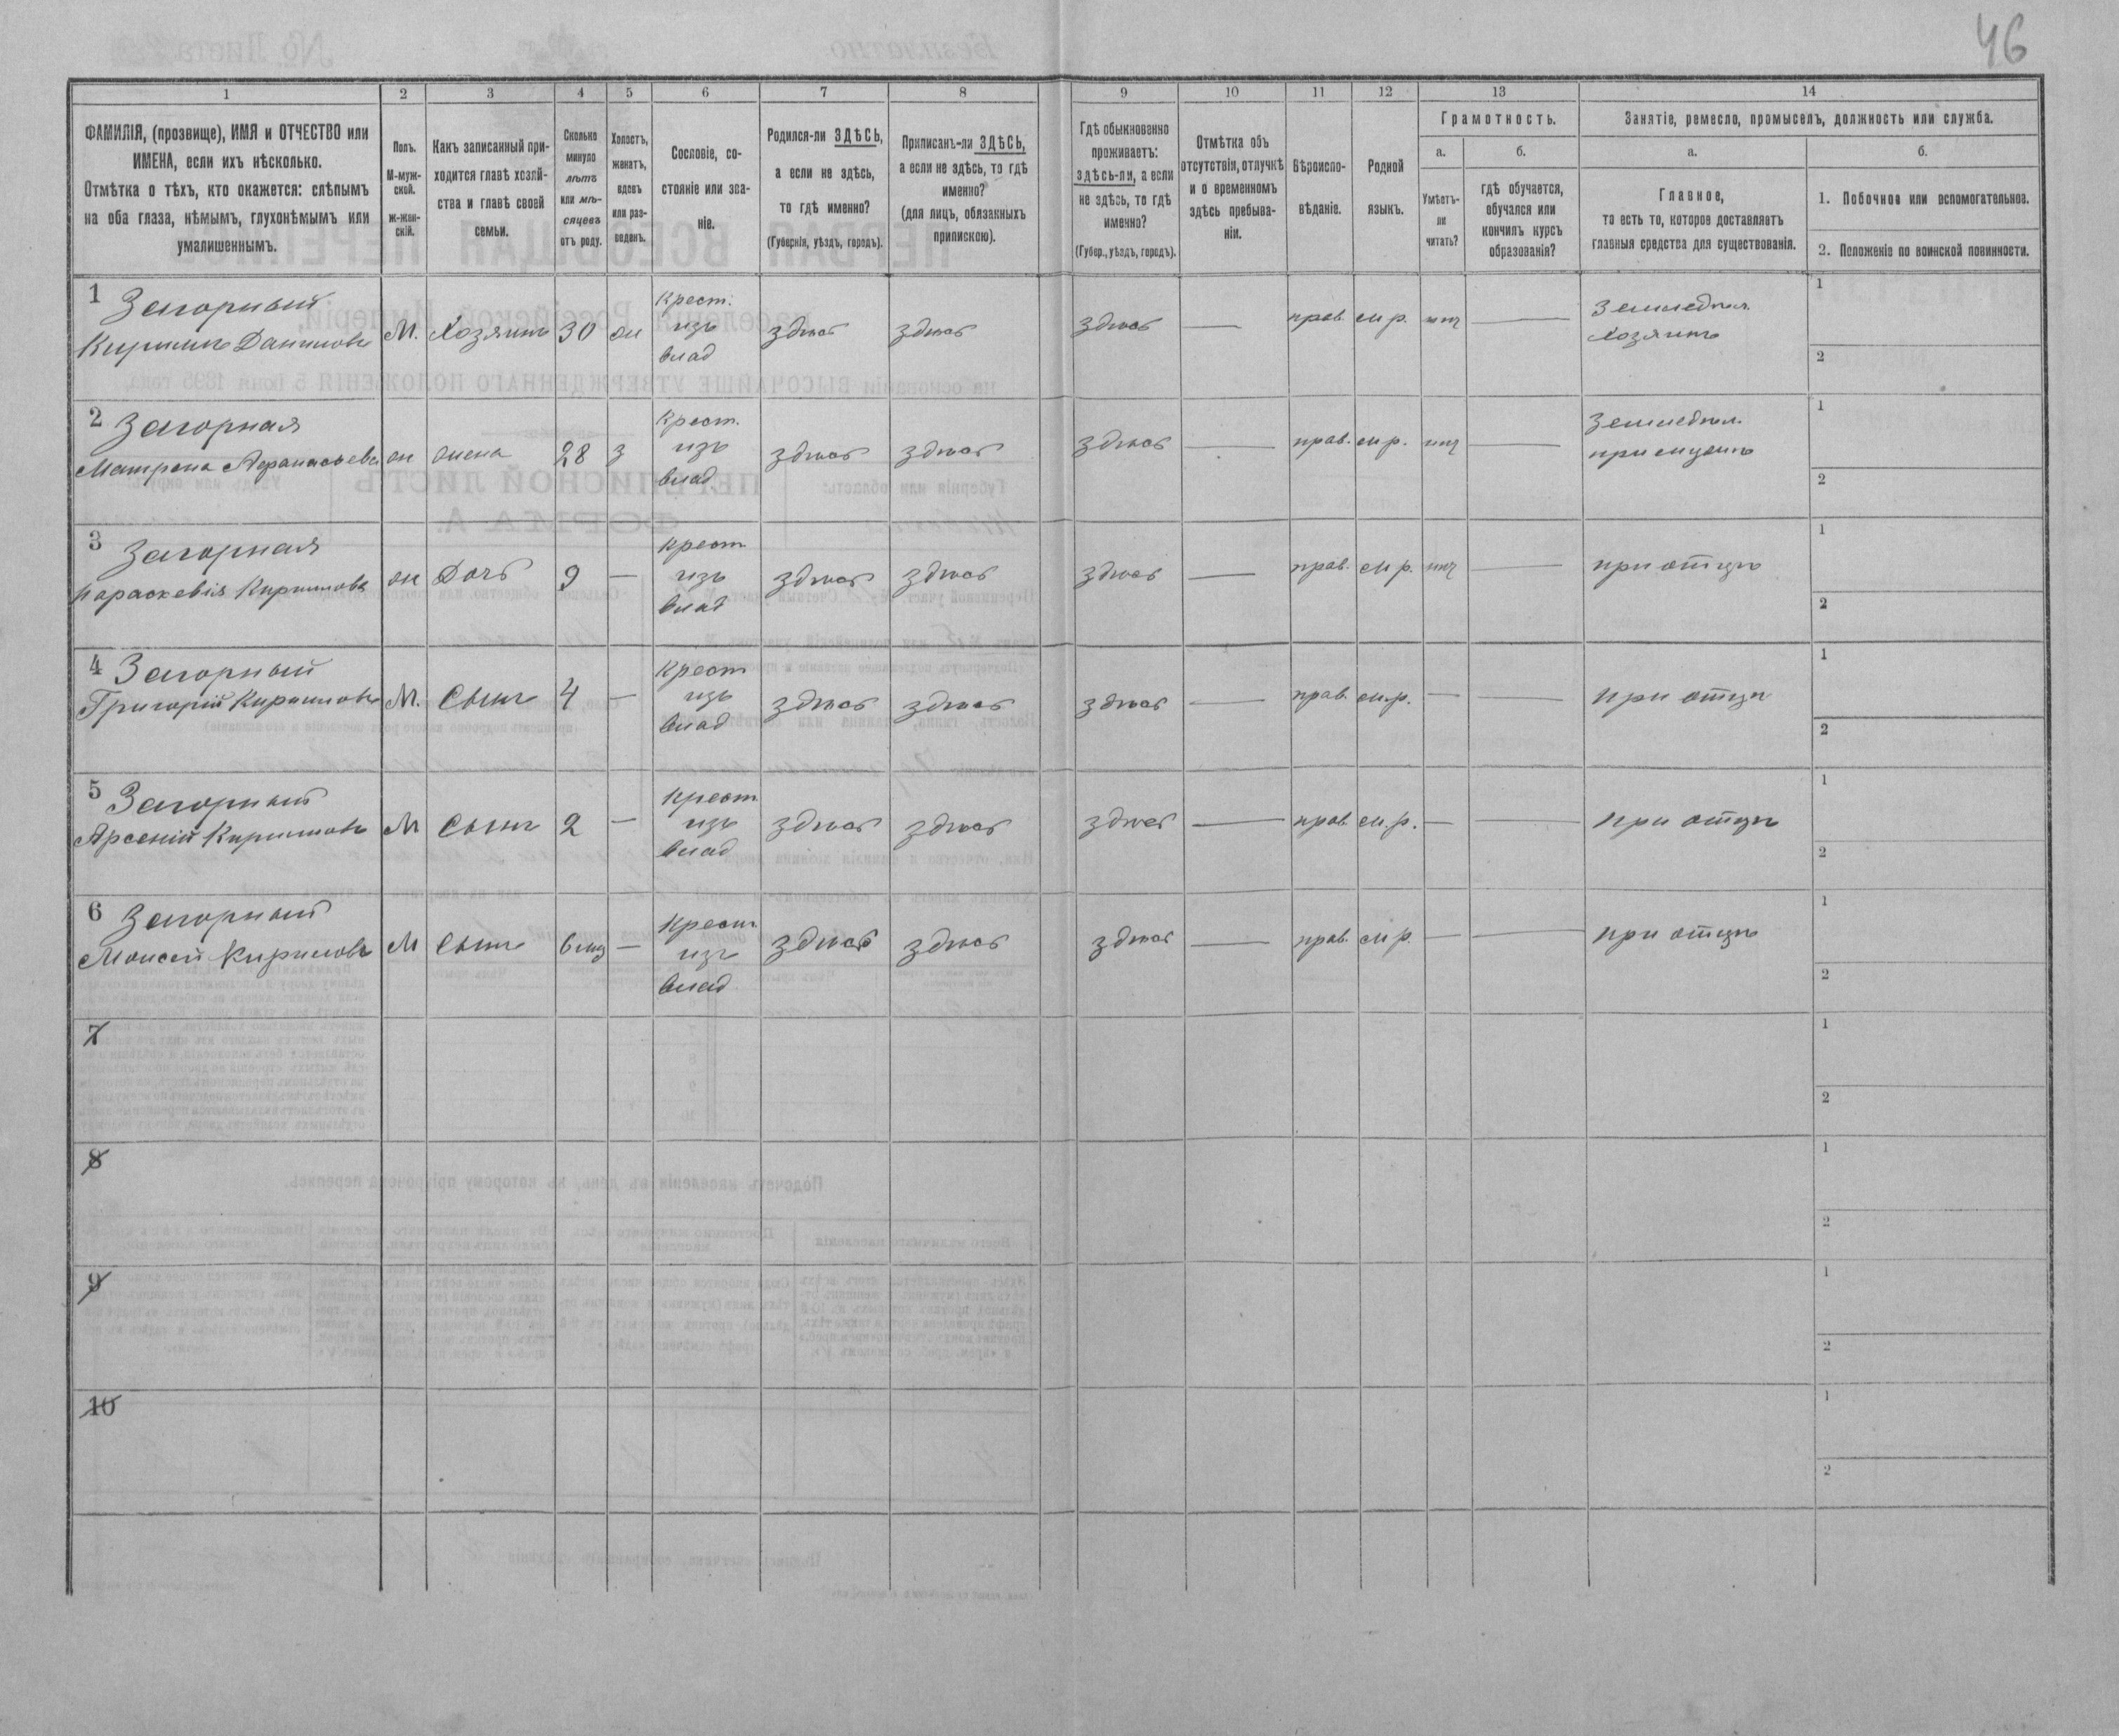 46
1
2
3
4
5
6
7
8
9
10
11
12
13
14
ФАМИЛІЯ, (прозвище), ИМЯ и ОТЧЕСТВО или
ИМЕНА, если ихъ нѣсколько.
Отмѣтка о тѣхъ, кто окажется: слѣпымъ
на оба глаза, нѣмымъ, глухонѣмымъ или
умалишеннымъ.
Полъ.
М-муж-
ской.
ж-жен-
скій.
Какъ записанный при-
ходится главѣ хозяй-
ства и главѣ своей
семьи.
Сколько
минуло
лѣтъ
или мѣ-
сяцевъ
отъ роду.
Холостъ,
женатъ,
вдовъ
или раз-
веденъ.
Сословіе, со-
стояніе или зва-
ніе.
Родился-ли ЗДѢСЬ,
а если не здѣсь,
то гдѣ именно?
(Губернія, уѣздъ, городъ).
Приписанъ-ли ЗДѢСЬ,
а если не здѣсь, то гдѣ
именно?
(для лицъ, обязанныхъ
припискою).
Гдѣ обыкновенно
проживаетъ:
здѣсь-ли, а если
не здѣсь, то гдѣ
именно?
(Губер., уѣздъ, городъ).
Отмѣтка объ
отсутствіи, отлучкѣ
и о временномъ
здѣсь пребыва-
ніи.
Вѣроиспо-
вѣданіе.
Родной
языкъ.
Грамотность.
а.
б.
Умѣетъ-
ли
читать?
гдѣ обучается,
обучался или
кончилъ курсъ
образованія?
Занятіе, ремесло, промыселъ, должность или служба.
а.
б.
Главное,
то есть то, которое доставляетъ
главныя средства для существованія.
1. Побочное или вспомогательное.
2. Положеніе по воинской повинности.
1 Загорный
Кирилъ Даниловъ М. Хозяинъ 30 ж
Крест.
изъ
влад
здѣсь здѣсь здѣсь — прав. м.р. нѣт —
Земледѣл.
Хозяинъ
1
2
2 Загорная
Матрена Афанасьева ж жена 28 з
Крест.
изъ
влад
здѣсь здѣсь здѣсь — прав. м.р. нѣт —
Земледѣл.
при мужѣ
1
2
3 Загорная
Параскевія Кирилова ж Дочь 9 —
Крест
изъ
влад
здѣсь здѣсь здѣсь — прав. м.р. нѣт —
при отцѣ
1
2
4 Загорный
Григорій Кириловъ М. Сынъ 4 —
Крест
изъ
влад
здѣсь здѣсь здѣсь — прав. м.р. — —
при отцѣ
1
2
5 Загорный
Арсеній Кириловъ М Сынъ 2 —
Крест
изъ
влад
здѣсь здѣсь здѣсь — прав. м.р. — —
при отцѣ
1
2
6 Загорный
Моисей Кириловъ М Сынъ 6 мц —
Крест
изъ
влад
здѣсь здѣсь здѣсь — прав. м.р. — —
при отцѣ
1
2
7
1
2
8
1
2
9
1
2
10
1
2